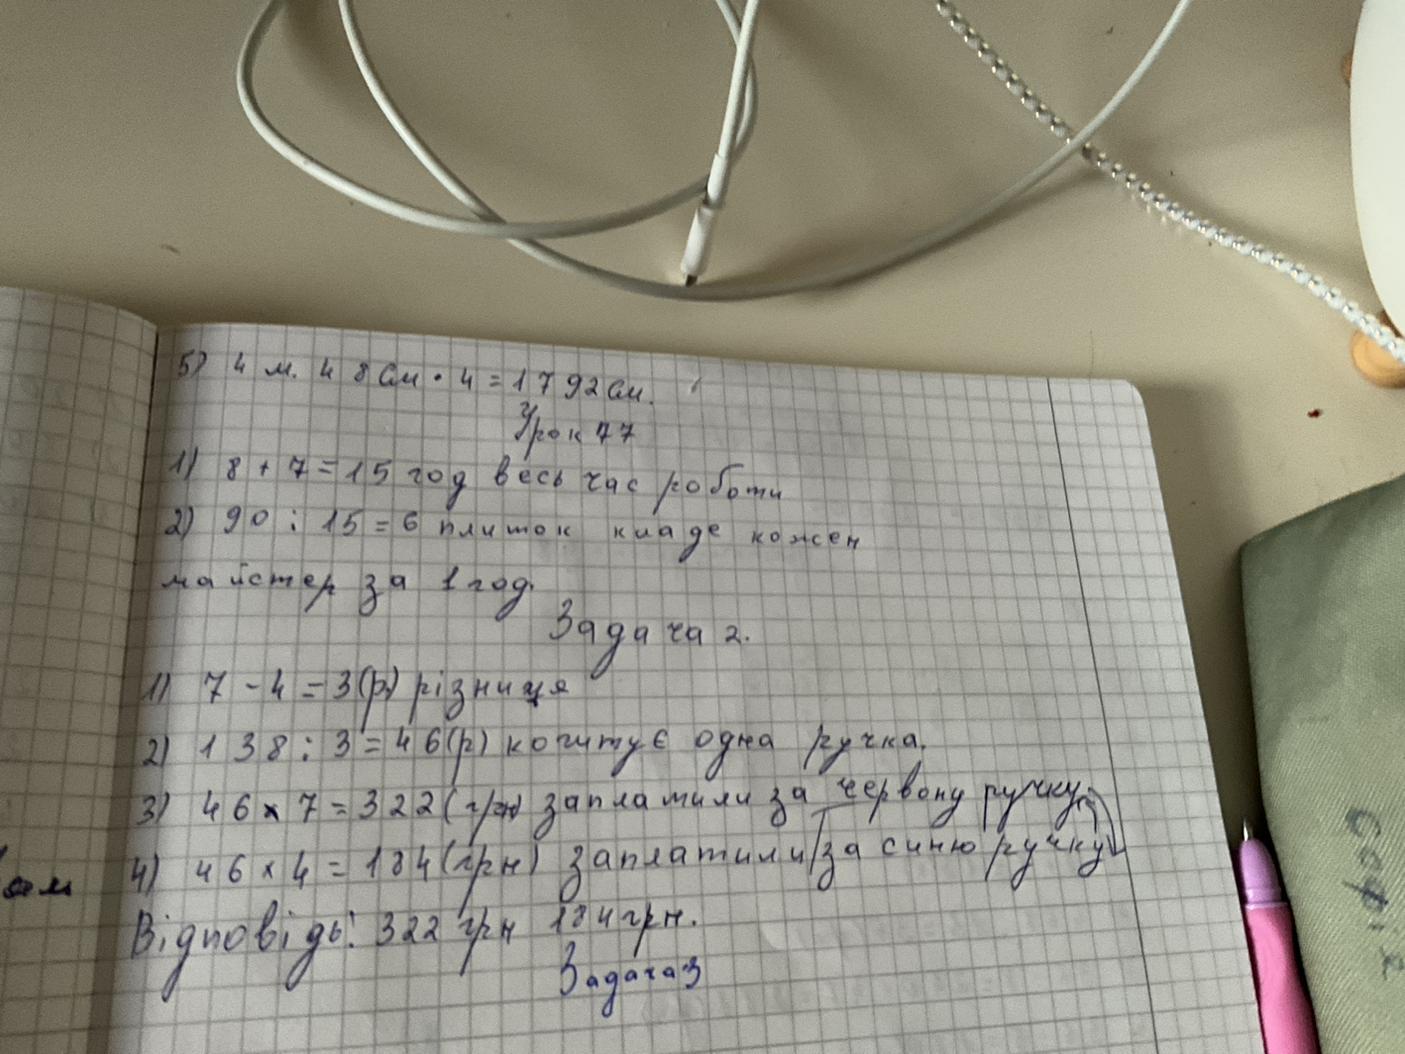 5) 4 м. 48 см · 4 = 1792 см.
Урок 77
1) 8 + 7 = 15 год весь час роботи
2) 90 : 15 = 6 плиток кладе кожен
майстер за 1 год.
Задача 2.
1) 7 - 4 = 3(р) різниця
2) 138 : 3 = 46(р) коштує одна ручка.
3) 46 x 7 = 322 (грн) заплатили за червону ручку
4) 46 x 4 = 184 (грн) заплатили за синю ручку
Відповідь: 322 грн 184 грн.
Задача 3